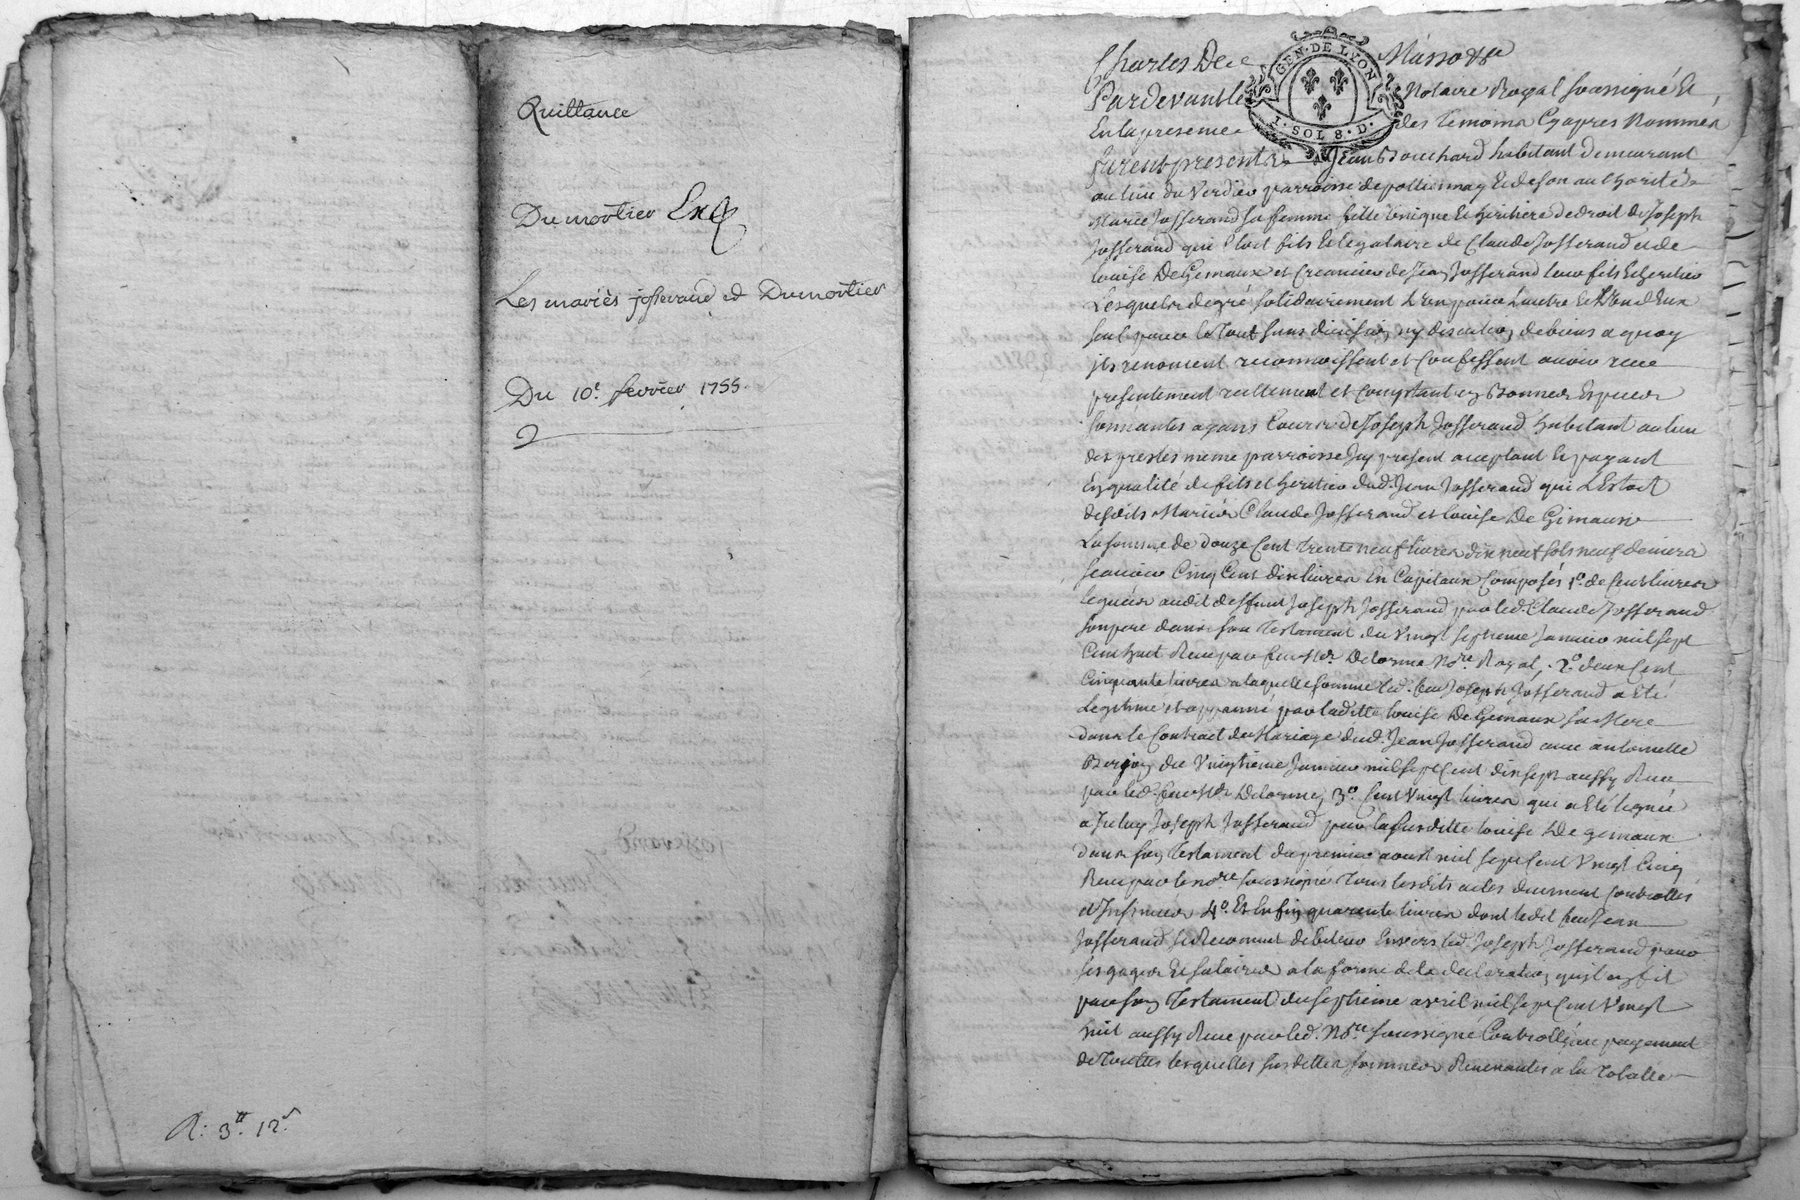 Quittance
Dumortier
Les mariés josserand et Dumortier
Du 10e. fevrier 1755.
R: 3tt. 12s
Charles De Masso &c
GEN. DE LYON
1. SOL 8. D.
Pardevant le Notaire Royal soussigné Et
En la presence des temoins Cy apres Nommés
furent presents Jean Bouchard habitant demeurant
au lieu du Verdier parroisse de pollionnay Et de son authorité
Marie Josserand sa femme fille Unique Et heritiere de droit de Joseph
Josserand qui Etoit fils Et legataire de Claude Josserand et de
louise De Gimaux et Creancier de Jean Josserand leur fils Et heritier
Lesquels de gré solidairement L'Un pour Lautre Et L'Un d'Eux
seul pour le Tout sans division ny discution de biens a quoy
ils renoncent reconnoissent et Confessent avoir receu
presentement reellement et Comptant en Bonnes Especes
sonnantes ayans Cours de Joseph Josserand habitant au lieu
des presles meme parroisse Icy present acceptant Et payant
En qualité de fils et heritier dud. Jean Josserand qui L'Estoit
desdits Mariés Claude Josserand et louise De Gimaux
La somme de douze Cent trente neuf livres dix neuf sols neuf deniers
scavoir Cinq Cent dix livres En Capitaux Composés 1o. de Cent livres
legués audit deffunt Joseph Josserand par led. Claude Josserand
son pere dans son Testament du Vingt septieme Janvier mil sept
Cent huit Receu par feu Me. Delorme Nore. Royal, 2o. deux Cent
Cinquante livres a laquelle somme led. feu Joseph Josserand a Eté
Legitimé et appanné par laditte louise De Gimaux sa Mere
dans le Contract de Mariage dud. Jean Josserand avec antoinette
du Vingtieme Janvier mil sept Cent dix sept aussy Receu
par led. feu Me. Delorme, 3o. Cent Vingt livres qui a Eté legué
a Iceluy Joseph Josserand par la susditte louise De gimaux
dans son Testament du premier aoust mil sept Cent Vingt Cinq
Receu par le nore. soussigné Tous lesdits actes duement Controllés
et Insinués 4o. Et Enfin quarente livres dont ledit feu Jean
Josserand se Reconnut debiteur Envers led. Joseph Josserand pour
ses gages Et salaires a la forme de la declaration quil en fit
par son Testament du septieme avril mil sept Cent Vingt
huit aussy Receu par led. Nore. soussigné Controllé, en payement
de Touttes lesquelles susdittes sommes Revenantes a la Totalle